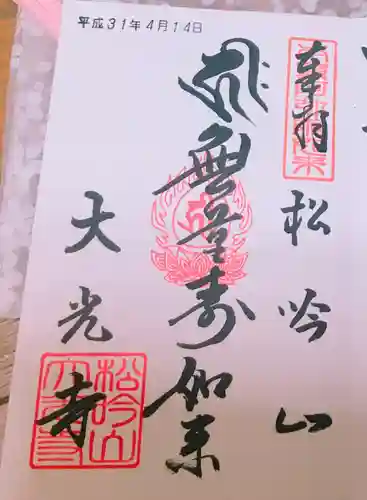 奉拝
松吟山
無量寿如来
大光寺
平成31年4月14日
松吟山
大光寺